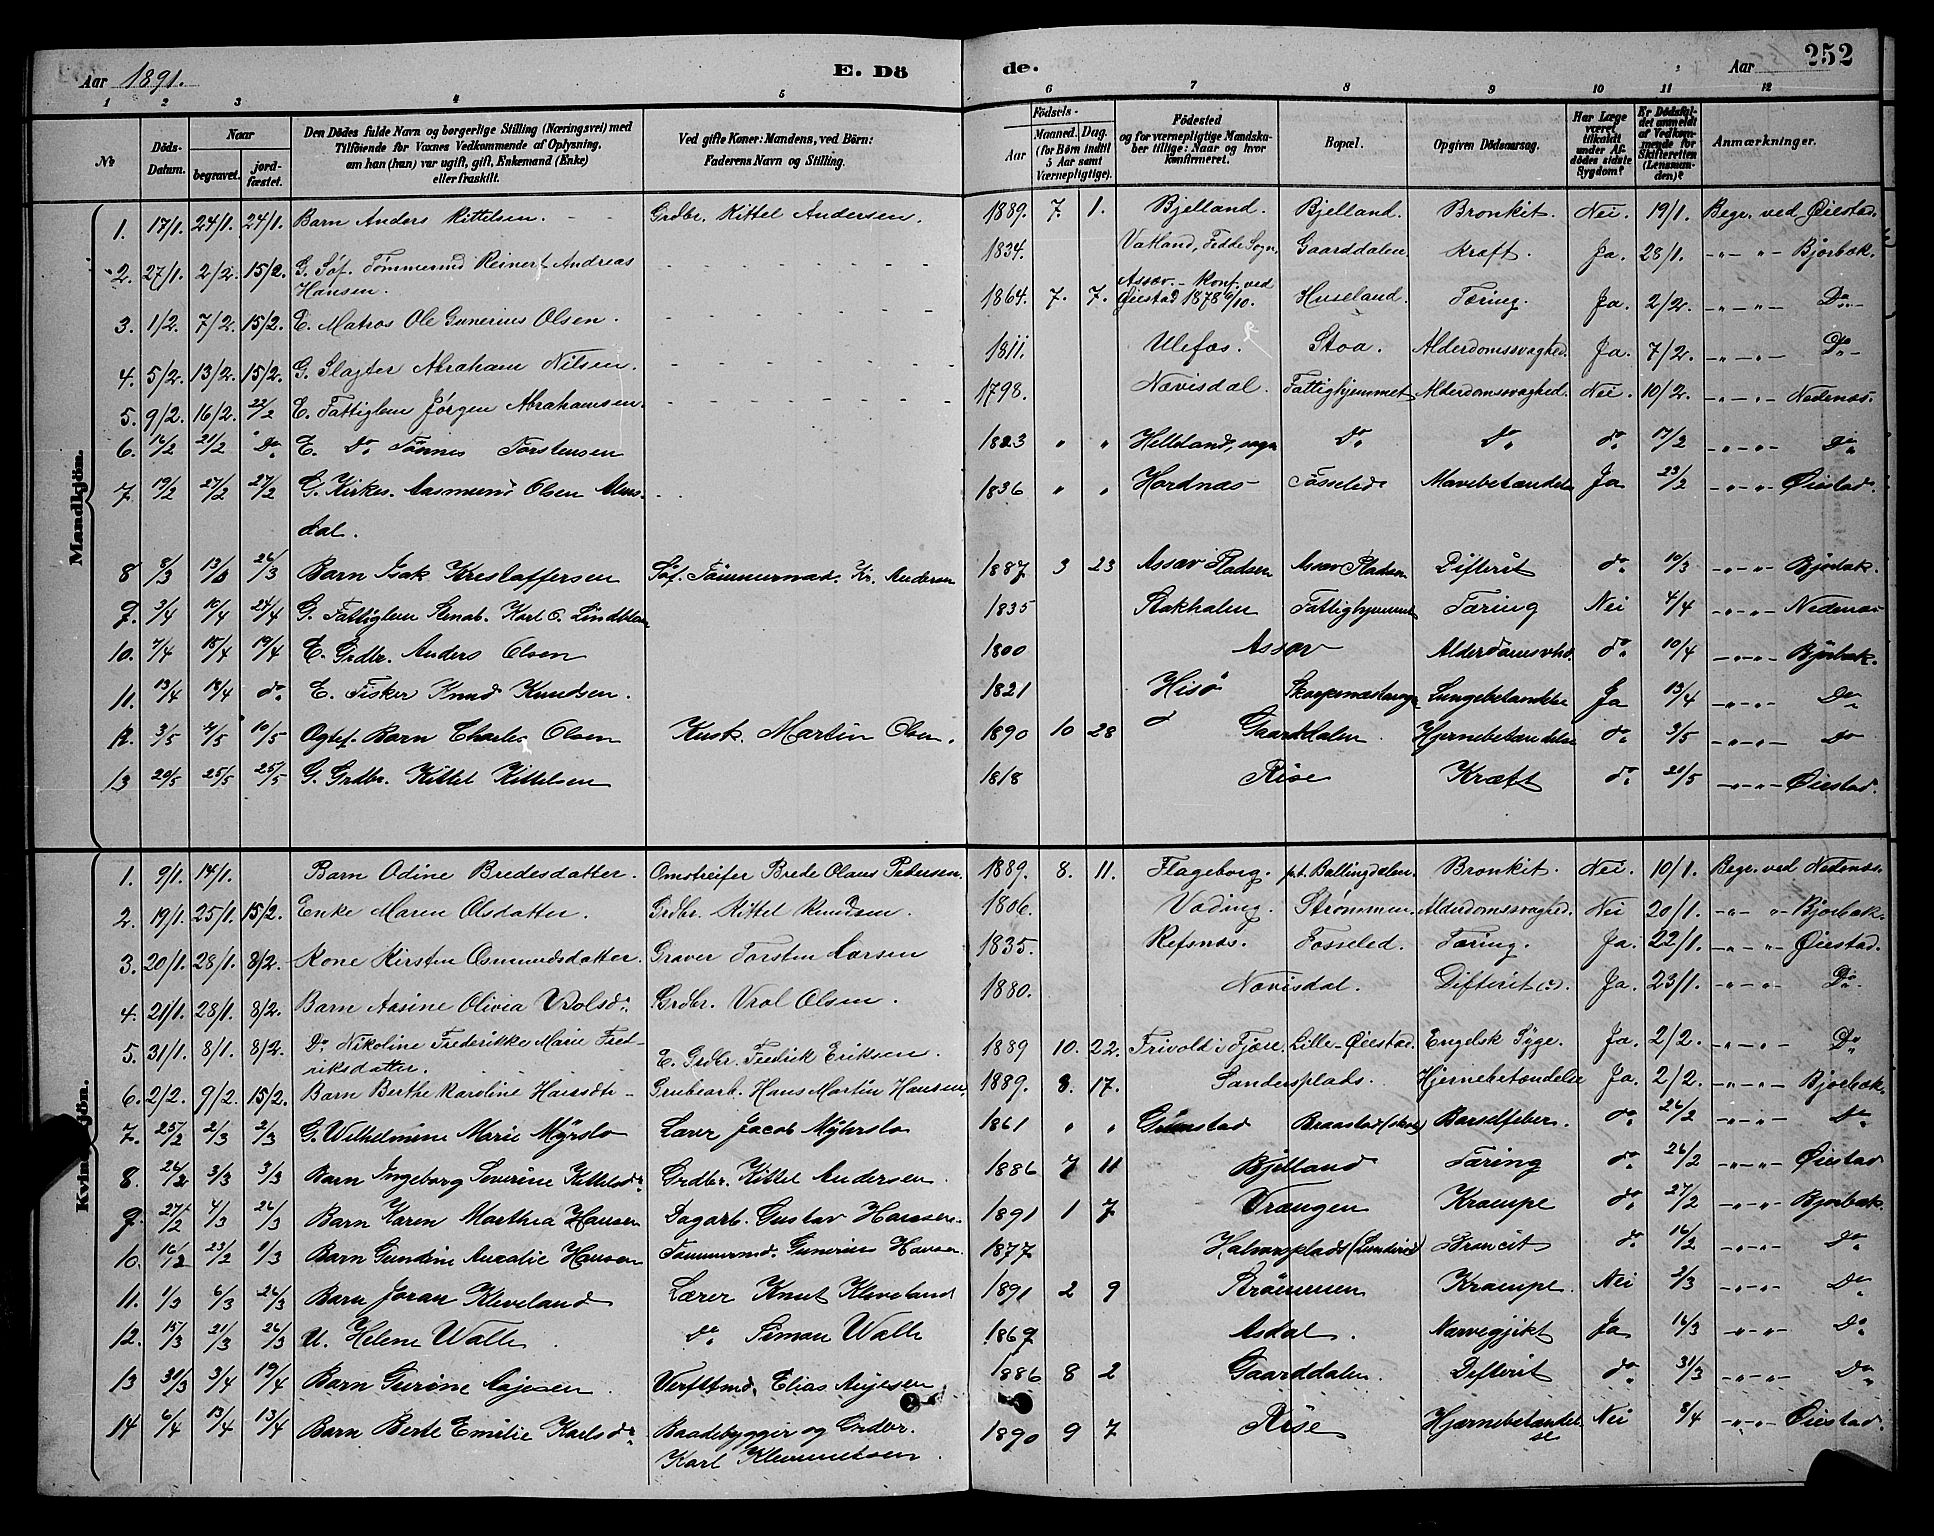 Aar 1891. E. Dö de. Aar 252
1 2 3 4 5 6 7 8 9 10 11 12
No
Döds-Datum.
Naar
begravet.
jord-fæstet.
Den Dödes fulde Navn og borgerlige Stilling (Næringsvei) med
Tilföiende for Voxnes Vedkommende af Oplysning,
om han (hun) var ugift, gift, Enkemand (Enke)
eller fraskilt.
Ved gifte Koner: Mandens, ved Börn:
Faderens Navn og Stilling.
Födsels-
Aar
Maaned. Dag.
(for Börn indtil
5 Aar samt
Værnepligtige).
Födested
og for værnepligtige Mandska-
ber tillige: Naar og hvor
konfirmeret.
Bopæl.
Opgiven Dödsaarsag.
Har Læge
været
tilkaldt
under Af-
dödes sidste
Sygdom?
Er Dödsfal-
det anmeldt
af Vedkom-
mende for
Skifteretten
(Lensman-
den)?
Anmærkninger.
Mandkjön.
1. 17/1. 24/1. 24/1. Barn Anders Kittelsen. Grdbr. Kittel Andersen. 1889. 7. 1. Bjelland. Bjelland. Bronkit. Nei. 19/1. Begr. ved Øiestad.
2. 27/1. 2/2. 15/2. G. Søf. Tømmermd Reinert Andreas Hansen. 1834. Vatland, Fedde Sogn. Gaarddalen. Kræft. Ja. 28/1. -„- „- Bjorbæk.
3. 1/2. 7/2. 15/2. E. Matros Ole Gunerius Olsen. 1864. 7. 7. Assæv. - Konf. ved Øiestad 1878 6/10. Huseland. Tæring. Ja. 2/2. -„- „- Do
4. 5/2. 13/2. 15/2. G. Slagter Abraham Nilsen. 1811. Ulefos. Stoa. Alderdomssvaghed. Ja. 7/2. -„- „- Do
5. 9/2. 16/2. 22/2 E. Fattiglem Jørgen Abrahamsen. 1798. Nævisdal. Fattighjemmet Alderdomssvaghed. Nei. 10/2. -„- „- Nedenæs.
6. 16/2 21/2 Do E. Do Tönnes Torstensen 1823 „ „ Helleland, sogn Do Do do 17/2 -„- „- Do
7. 19/2 27/2 27/2 G. Kirkes. Aasmund Olsen dal. 1836 „ „ Hordnæs Fosseled Mavebetændelse Ja 23/2 -„- „- Øiestad.
8 8/3 26/3 Barn Isak Kristoffersen Søf. Tømmermd. Kr. Andersen 1887 3 23 Assæv Pladsen Assæv Pladsen Difterit do 10/3 -„- „- Bjorbæk.
9. 3/4 10/4 24/4 G. Fattiglem Karl O. Lindblom 1835 Fattighjemmet Tæring Nei 4/4 -„- „- Nedenæs
10. 7/4 15/4 19/4 E. Grdbr. Anders Olsen 1800 Assæv Alderdomsvhd. do 10/4 -„- „- Bjorbæk.
11. 13/4 18/4 do E. Fisker Knud Knudsen. 1821 Hisö Lungebetændelse Ja 13/4 -„- „- Do
12. 3/5 7/5 10/5 Ogtef. Barn Charles Olsen Kusk. Martin Olsen. 1890 10 28 Gaarddalen Hjernebetændelse do 3/5 -„- „- Do
13 20/5 25/5 25/5 G. Grdbr. Kittel Kittelsen 1818 Rise Kræft do 21/5 -„- „- Øiestad.
Kvindekjön.
1. 9/1. 14/1. Barn Odine Bredesdatter. Omstreifer Brede Olaus Pedersen. 1889. 8. 11. Flageborg. p.t. Bøllingdalen. Bronkit. Nei. 10/1. Begr. ved Nedenæs.
2. 19/1. 25/1. 15/2. Enke Maren Olsdatter. Grdbr. Kittel Knudsen. 1806. Vading. Strømmen. Alderdomssvaghed. Nei 20/1. -„- „- Bjorbæk.
3. 20/1. 28/1. 8/2. Kone Kirsten Osmundsdatter. Graver Torsten Larsen 1835. Refsnæs. Fosseled. Tæring. Ja. 22/1. -„- „- Øiestad.
4. 21/1. 28/1. 8/2. Barn Aasine Olivia Vrolsdr. Grdbr. Vrol Olsen. 1880. Nævisdal. Difterit (?). Ja. 23/1. -„- „- Do
5. 31/1. 8/1. 8/2. Do Nikoline Frederikke Marie Fred-riksdatter. E. Grdbr. Fredrik Eriksen. 1889 10. 22. Trivold i Fjære. Lille-Øiestad. Engelsk Syge. Ja. 2/2. -„- „- Do
6. 2/2. 9/2. 15/2. Barn Berthe Karoline Hansdtr Grubearb. Hans Martin Hansen. 1889. 8. 17. Sandersplads. Hjernebetændelse Ja. 2/2. -„- „- Bjorbæk.
7. 25/2 2/3 2/3 G. Wilhelmine Marie Myrslo Lærer Jacob Myhrslo 1861 „ „ Grimstad Braastad Barselfeber. do 26/2 -„- „- Do
8. 26/2 3/3 3/3 Barn Ingeborg Severine Kittelsdr Grdbr. Kittel Andersen. 1886 7 11 Bjelland Tæring do 26/2 -„- „- Øiestad
9. 27/2 4/3 26/3 Barn Karen Marthea Hansen Dagarb. Gustav Hansen. 1891 1 7 Vrangen Krampe do 27/2 -„- „- Bjorbæk.
10. 16/2 23/2 1/3 Barn Gundine Auralie Hansen Tømmermd. Gunerius Hansen. 1877. Holmsplads Broncit do 16/2 -„- „- Do
11. 1/3 6/3 26/3 Barn Joran Kleveland Lærer Knut Kleveland 1891 2 9 Strömmen Krampe. Nei 2/3 -„- „- Do
12. 15/3 21/3 26/3 U. Helene Walle Do Simon Walle 1869 Asdal. Nervegjikt Ja 16/3 -„- „- Do
13 31/3 3/4 19/4 Barn Gurine Aajesen. Verftmd. Elias Aajesen 1886 8 2 Gaarddalen. Difterit do 31/3 -„- „- Do
14 6/4 13/4 13/4 Barn Berte Emilie Karlsdr Baadebygger og Grdbr. Karl Klemmetsen. 1890 9 7 Rise Hjærnebetændelse Nei 8/4 -„- „- Øiestad.